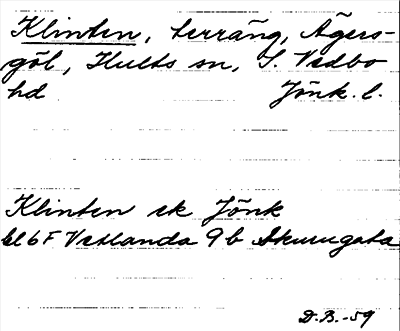 Klinten, terräng, Ägers-
göl, Hults sn, S. Vedbo
hd Jönk. l.
Klinten ek Jönk
bl 6F Vetlanda 9b Skurugata
D.B.-59